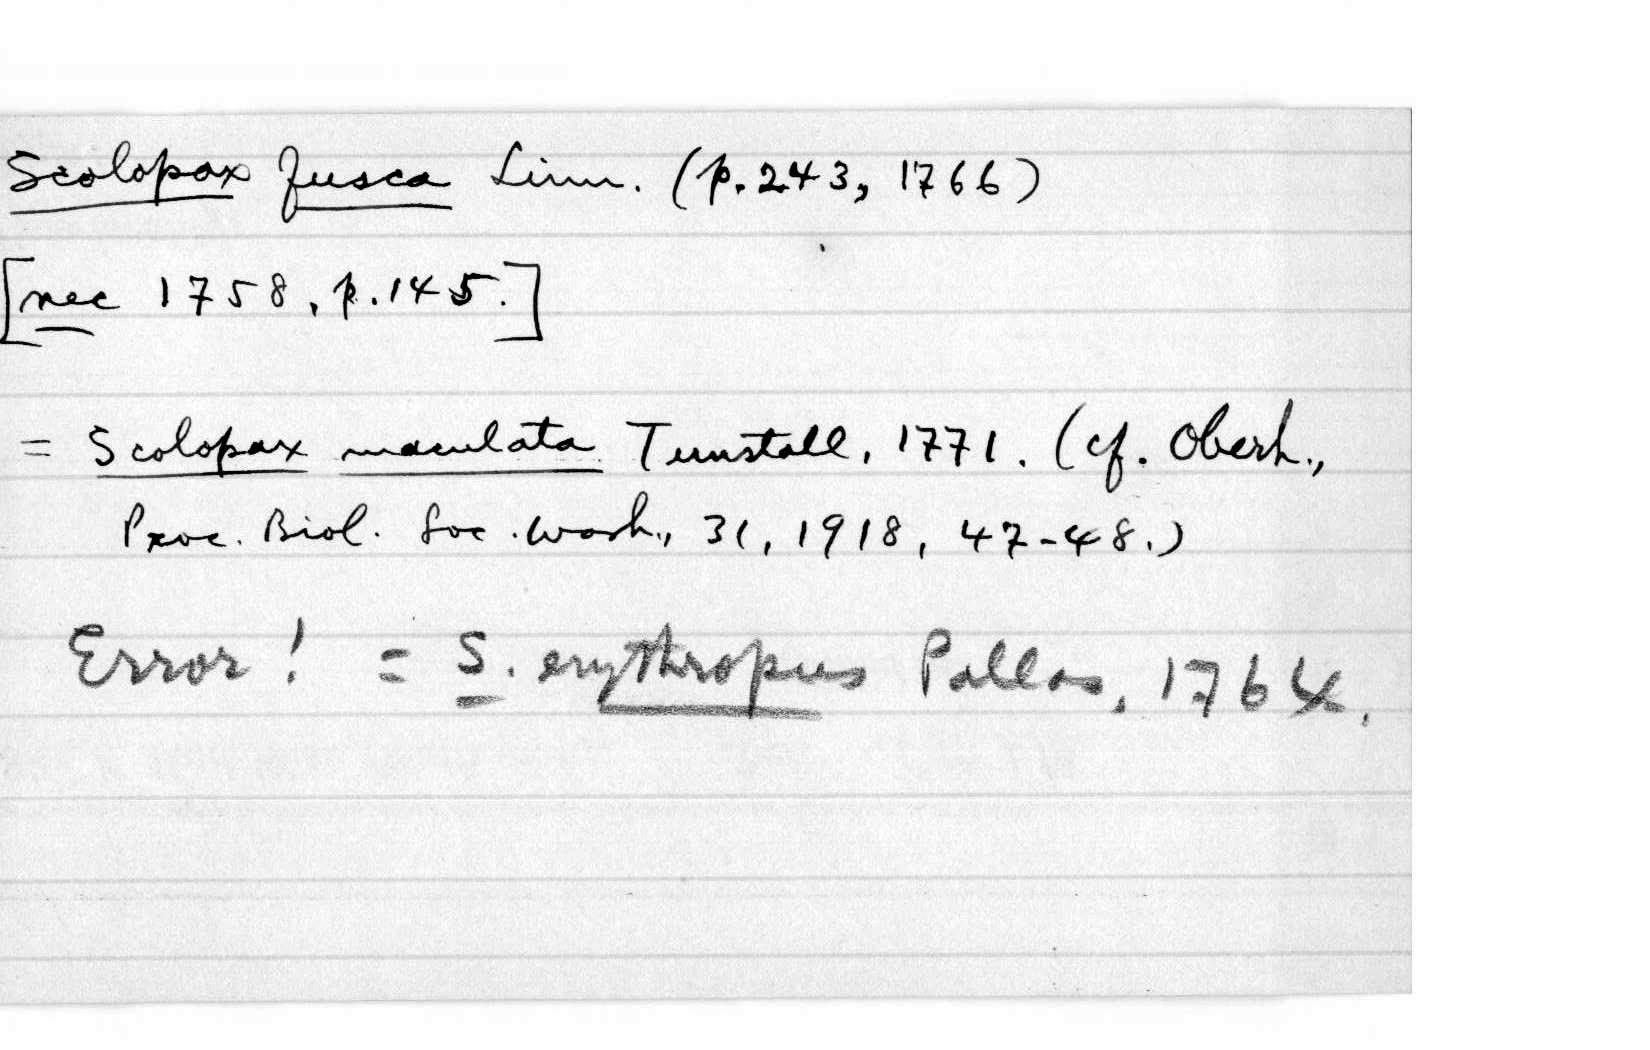 Scolopax fusca Linn. (p. 243, 1766)
[nec 1758, p. 145.]
= Scolopax maculata Tunstall, 1771. (cf. Oberh.,
Proc. Biol. Soc. Wash., 31, 1918, 47-48.)
Error! = S. erythropus Pallas, 1764.